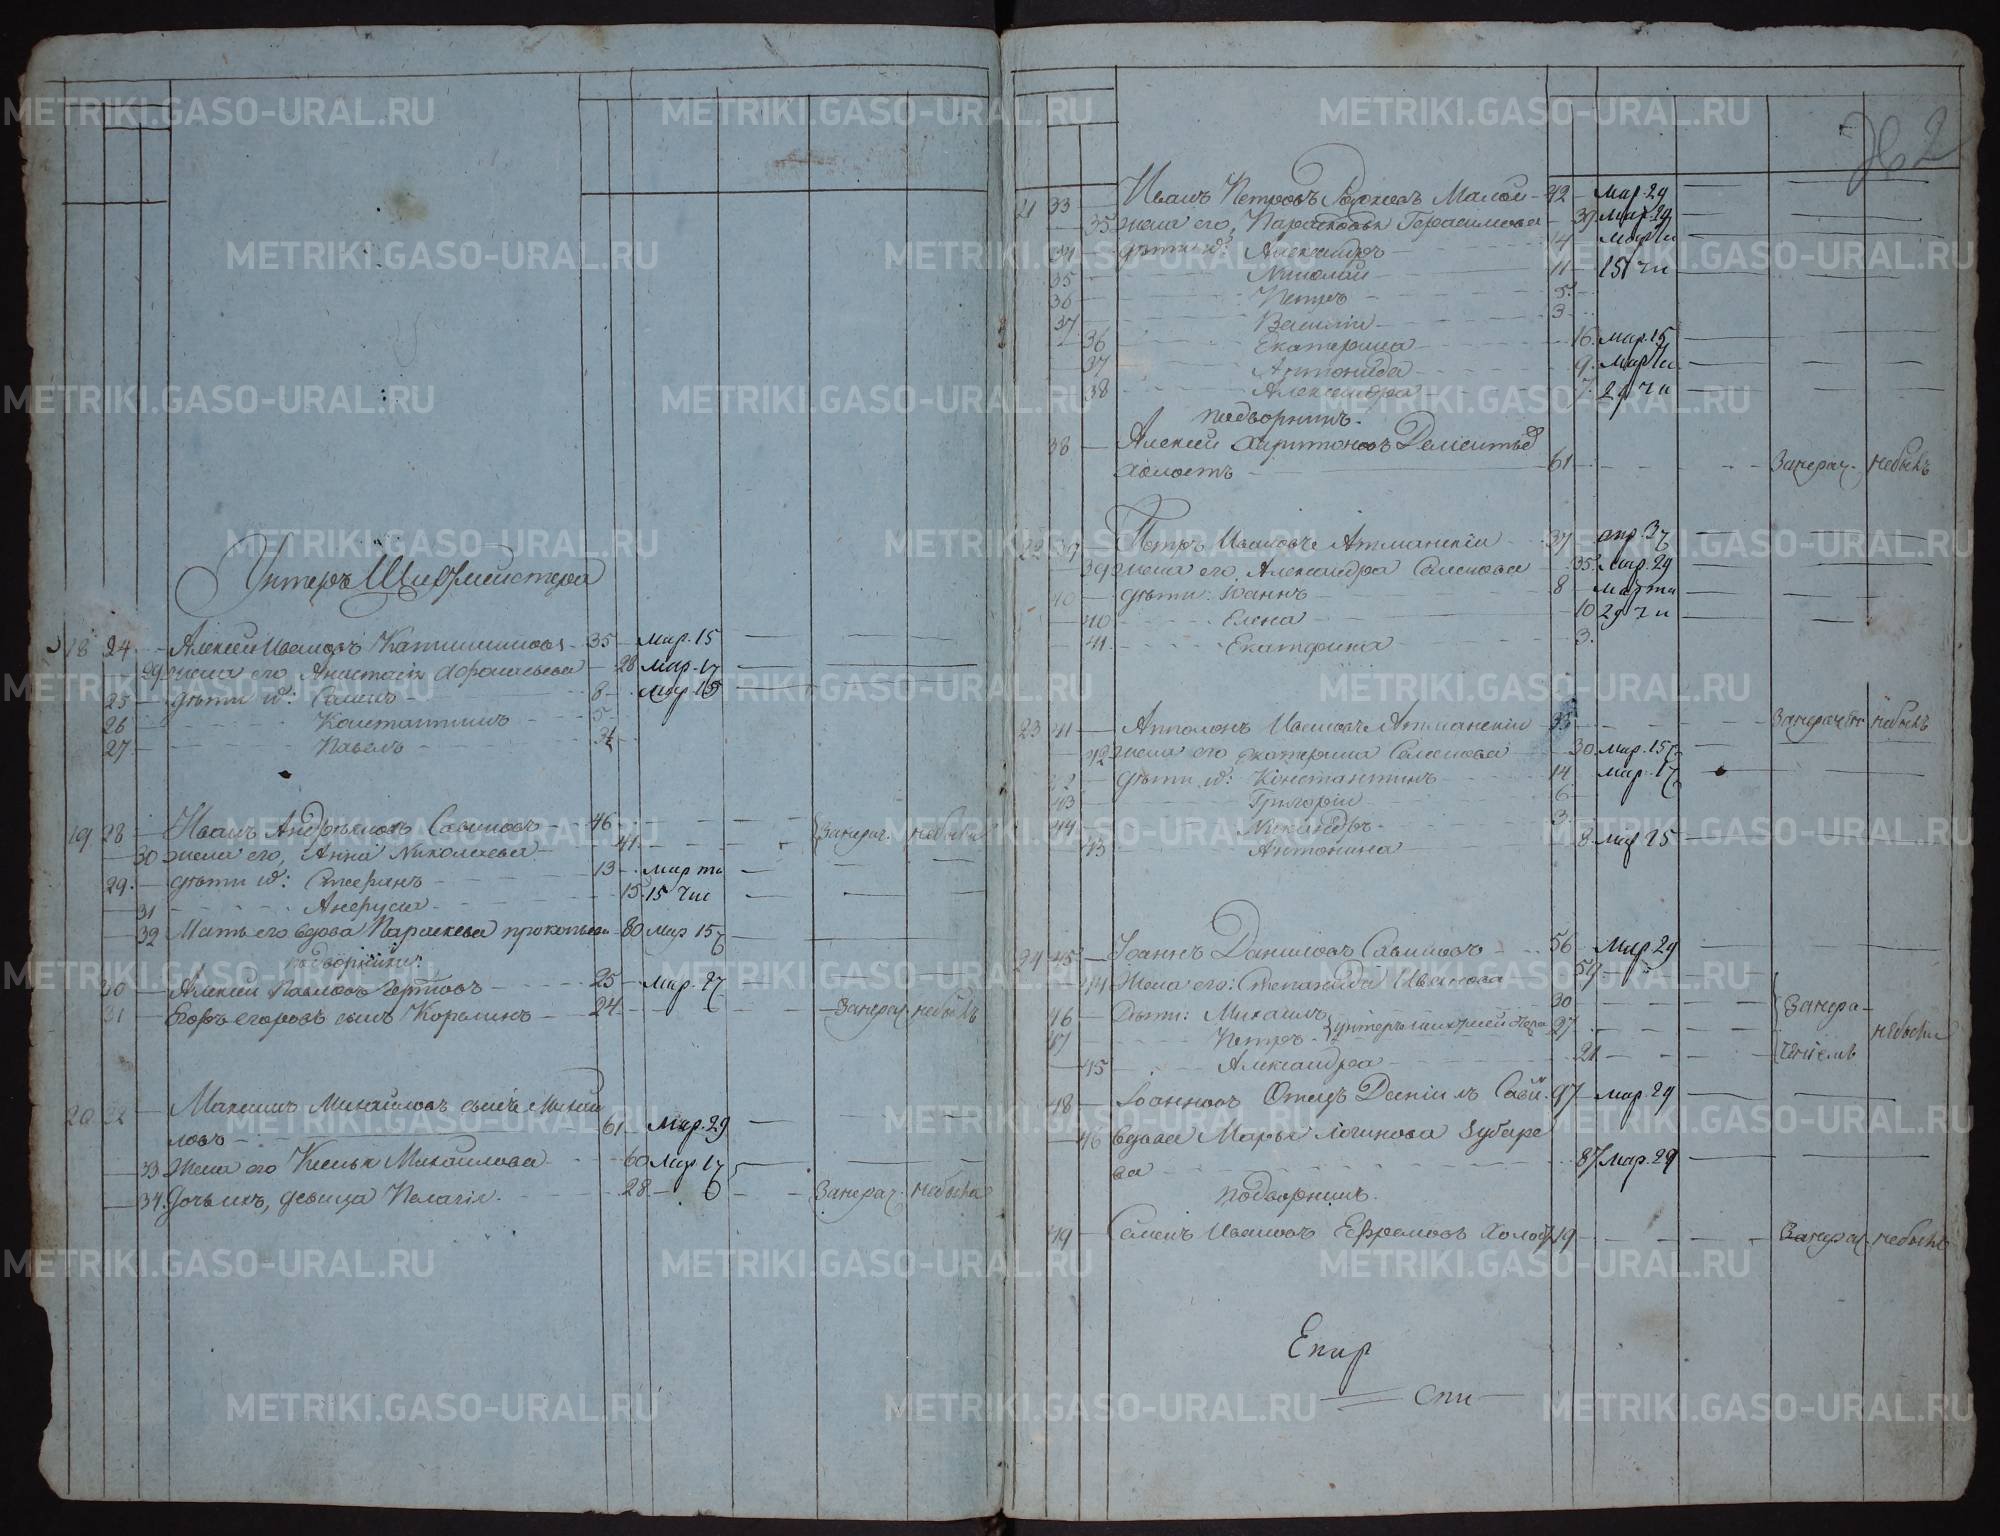 Унтеръ Шихтмейстера
18 24 Алексей Ивановъ 35 Мар. 15
29 жена его Анастасія Афонасьева 28 Мар. 17
25 дѣти их: Семенъ 8 Мар 15
26 Константинъ 5
27 Павелъ
19 28 Иванъ Андрѣевъ Савиновъ 46 Занерач. небыли
30 жена его, Анна Николаева 41
29 дѣти их: Стефанъ 13 Марта
31 15 15 Чис
32 Мать его вдова Параскева прокопьева 80 Мар 15
подворники:
30 Алексей Павловъ 25 Мар. 27
31 Егоръ егоровъ сынъ 24 Занерач небылъ
20 32 Максимъ Михайловъ сынъ Михай
ловъ 61 Мар. 29
33 Жена его Михайлова 60 Мар 17
34 Дочь ихъ, девица Пелагія. 28 Занерач. небыла
21 33 Иванъ Петровъ 42 Мар. 29
35 жена его, Парасковья Герасимова 39 Мар. 29
34 дѣти их: Александръ 14 Марта
35 Николай 11 15 чи
36 Петръ 5
37 Василій 3
36 Екатерина 16 Мар. 15
37 Антонида 9 Марта
38 Александра 7 29 чи
подворникъ.
38 Алексей Харитоновъ
холостъ 61 Занерач. небылъ
22 39 Петръ Ивановъ Атманскій 37 апр. 3
39 жена его, Александра Семенова 35 Мар. 29
40 дѣти: Іоаннъ 8 Марта
40 Елена 10 29 чи
41 Екатерина 3
23 41 Ивановъ Атманскій 35 небылъ
42 жена его екатерина Семенова 30 Мар. 15
42 дѣти их: Константинъ 14 Мар. 17
43 Григорій 6
44 Никандръ 3
43 Антонина 8 Мар 15
24 45 Іоаннъ Даниловъ Савиновъ 56 Мар. 29
44 Жена его: Степанида Иванова 54
46 Дѣти: Михаилъ 30 Занера-
47 Петръ унтеръ 27 небыли
45 Александра 21 чіемъ
48 Іоанновъ Отецъ Даніилъ Сави. 97 Мар. 29
46 вдова Марья Логинова Зубаре
ва 87 Мар. 29
подворникъ.
49 Семенъ Ивановъ Ефремовъ Холос 19 Занерач. небылъ
Екир
спи
METRIKI.GASO-URAL.RU